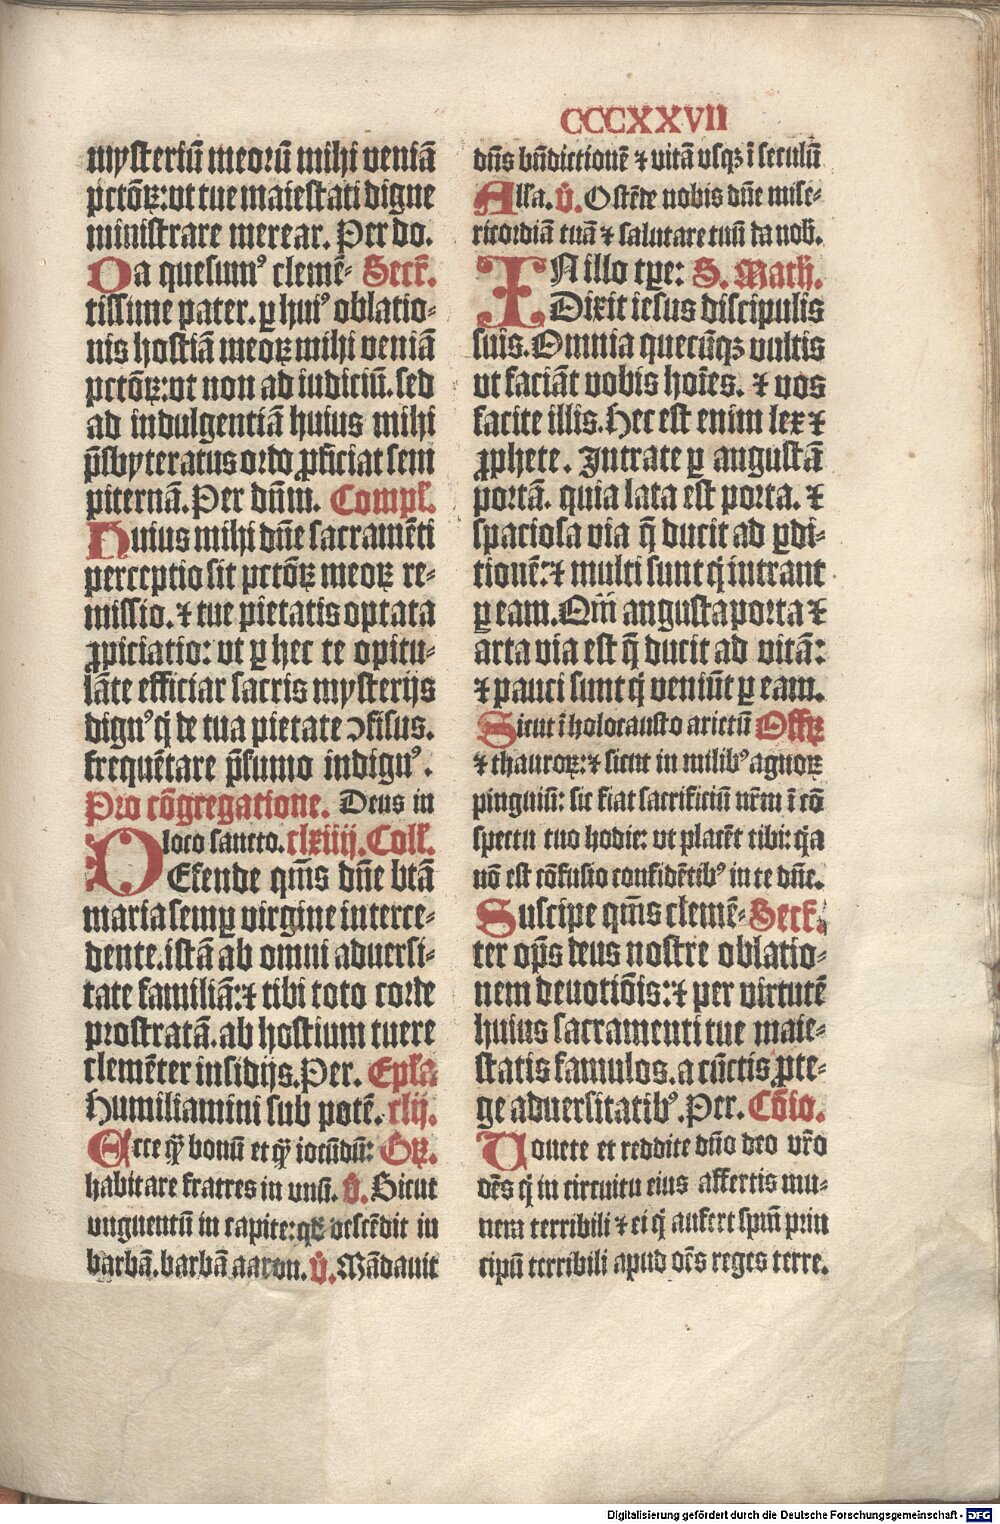 CCCXXVII
mysteriū meorū mihi veniā
pctōꝝ:vt tue maiestati digne
ministrare merear. Per do.
Da quesumꝰ clemē- Secr̄.
tissime pater. ꝑ huiꝰ oblatio-
nis hostiā meoꝝ mihi veniā
pctōꝝ:vt non ad iudiciū. sed
ad indulgentiā huius mihi
p̄sbyteratus ordo ꝓficiat sem
piternā. Per dn̄m. Compl̄.
Huius mihi dn̄e sacramēti
perceptio sit pctōꝝ meoꝝ re-
missio. ⁊ tue pietatis optata
ꝓpiciatio: vt ꝑ hec te opitu-
lāte efficiar sacris mysterijs
dignꝰ q̄ de tua pietate ↄfisus.
frequētare p̄sumo indignꝰ.
Pro cōgregatione. Deus in
loco sancto. clxiiij. Coll̄.
DEfende qm̄s dn̄e btā
maria semꝑ virgine interce-
dente.istā ab omni aduersi-
tate familiā:⁊ tibi toto corde
prostratā. ab hostium tuere
clemēter insidijs. Per. Epl̄a
Humiliamini sub potē. clij.
Ecce qͣ̄ bonū et qͣ̄ iocūdū: Gꝝ.
habitare fratres in vnū. v̄. Sicut
vnguentū in capite:qd̄ descēdit in
barbā. barbā aaron. v̄. Mādauit
dn̄s bn̄dictionē ⁊ vitā vsqꝫ ī seculū
Alla. v̄. Ostēde nobis dn̄e mise-
ricordiā tuā ⁊ salutare tuū da nob̄.
IN illo tꝑe: S. Math.
Dixit iesus discipulis
suis. Omnia quecūqꝫ vultis
vt faciāt vobis hoīes. ⁊ vos
facite illis. Hec est enim lex ⁊
ꝓphete. Intrate ꝑ angustā
portā. quia lata est porta. ⁊
spaciosa via q̄ ducit ad ꝑdi-
tionē:⁊ multi sunt q̄ intrant
ꝑ eam. Qm̄ angusta porta ⁊
arta via est q̄ ducit ad vitā:
⁊ pauci sunt q̄ veniūt ꝑ eam.
Sicut ī holocausto arietū Offꝝ
⁊ thauroꝝ:⁊ sicut in milibꝰ agnoꝝ
pinguiū: sic fiat sacrificiū nr̄m ī cō
spectu tuo hodie: vt placēt tibi: q̄a
nō est cōfusio confidētibꝰ in te dn̄e.
Suscipe qm̄s clemē- Secr̄.
ter op̄s deus nostre oblatio-
nem deuotiōis:⁊ per virtutē
huius sacramenti tue maie-
statis famulos. a cūctis ꝓte-
ge aduersitatibꝰ. Per. Cōīo.
Vouete et reddite dn̄o deo vr̄o
oēs q̄ in circuitu eius affertis mu-
nera terribili ⁊ ei q̄ aufert spm̄ prin
cipū terribili apud oēs reges terre.
Digitalisierung gefördert durch die Deutsche Forschungsgemeinschaft - DFG